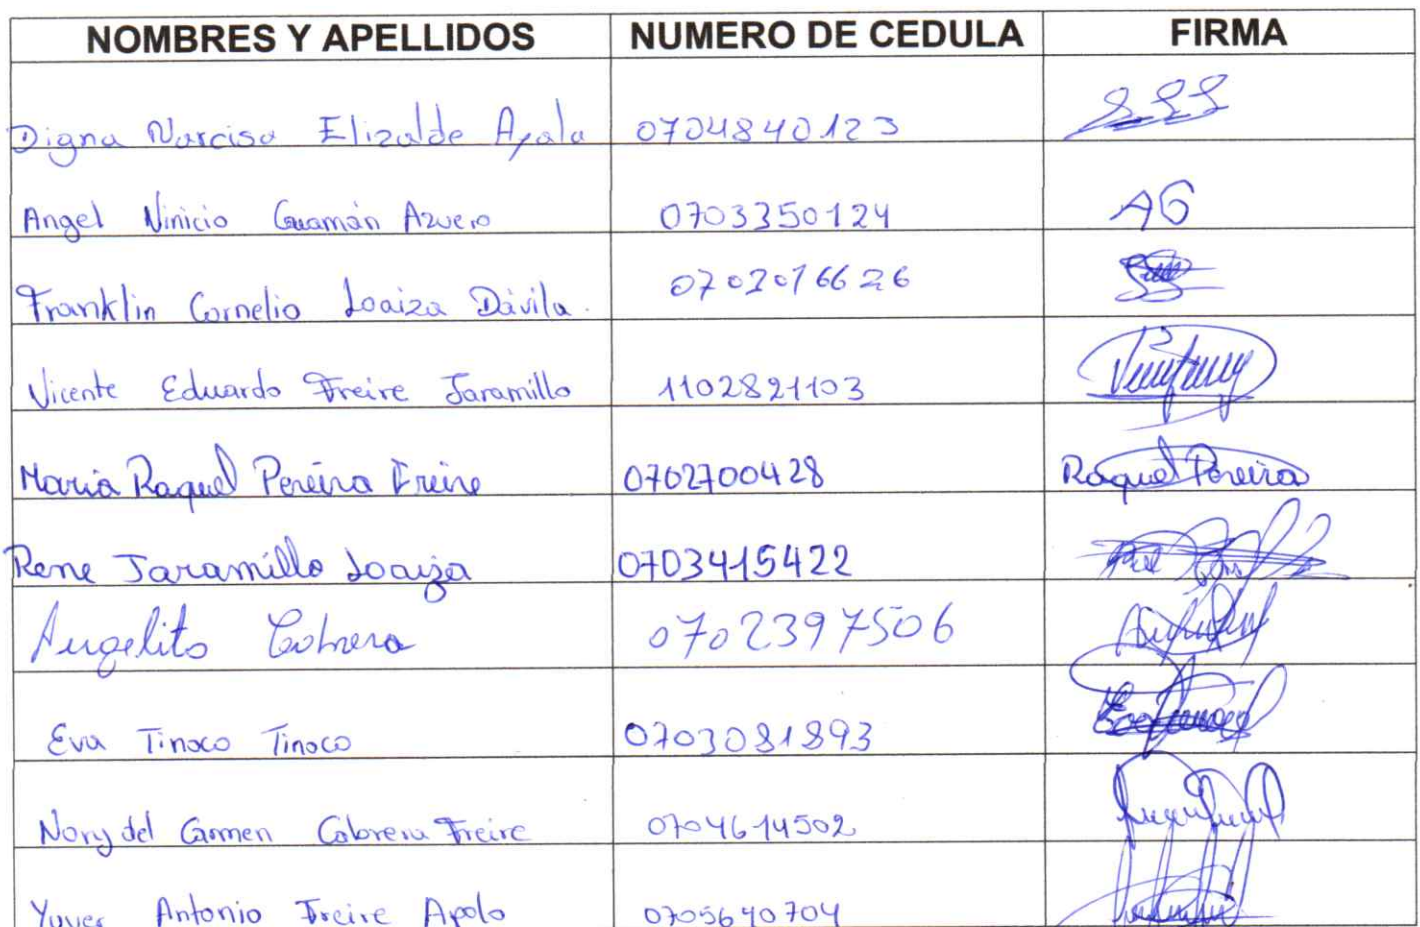 NOMBRES Y APELLIDOS NUMERO DE CEDULA FIRMA
Digna Narcisa Elizalde Ayala 0704840123
Angel Vinicio Guamán Azuero 0703350124 AG
Franklin Cornelio Loaiza Dávila. 0702016626
Vicente Eduardo Freire Jaramillo 1102821103
Maria Raquel Pereira Freire 0702700428 Raquel Pereira
Rene Jaramillo Loaiza 0703415422
Angelito Cabrera 0702397506
Eva Tinoco Tinoco 0703081893
Nory del Carmen Cabrera Freire 0704614502
Antonio Freire Apolo 0705640704